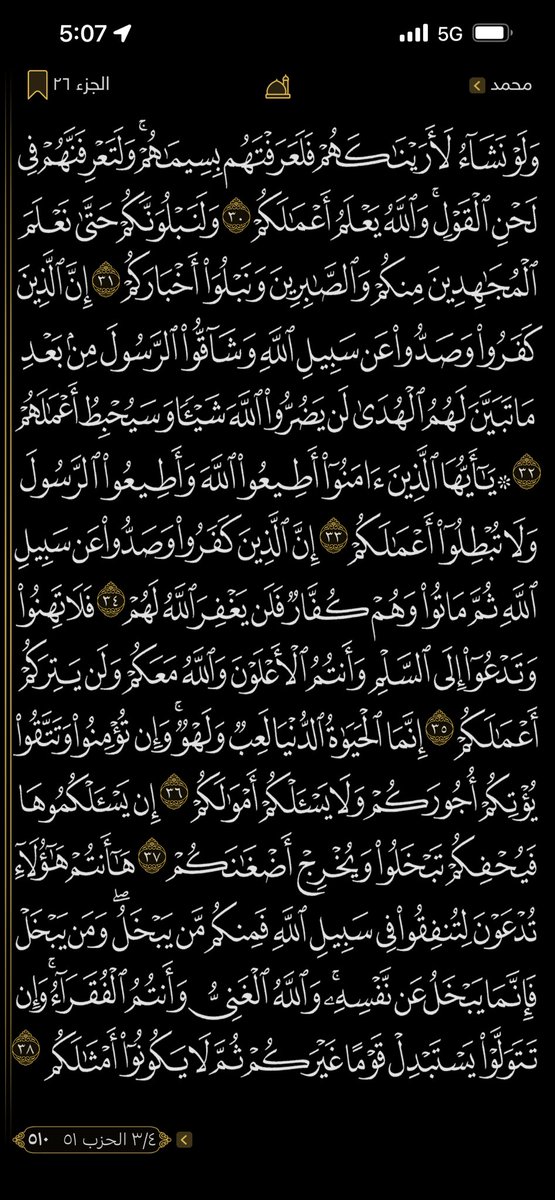 5:07 5G
محمد الجزء ٢٦
وَلَوْ نَشَآءُ لَأَرَيْنَـٰكَهُمْ فَلَعَرَفْتَهُم بِسِيمَـٰهُمْ ۚ وَلَتَعْرِفَنَّهُمْ فِى
لَحْنِ ٱلْقَوْلِ ۚ وَٱللَّهُ يَعْلَمُ أَعْمَـٰلَكُمْ ٣٠ وَلَنَبْلُوَنَّكُمْ حَتَّىٰ نَعْلَمَ
ٱلْمُجَـٰهِدِينَ مِنكُمْ وَٱلصَّـٰبِرِينَ وَنَبْلُوَا۟ أَخْبَارَكُمْ ٣١ إِنَّ ٱلَّذِينَ
كَفَرُوا۟ وَصَدُّوا۟ عَن سَبِيلِ ٱللَّهِ وَشَآقُّوا۟ ٱلرَّسُولَ مِنۢ بَعْدِ
مَا تَبَيَّنَ لَهُمُ ٱلْهُدَىٰ لَن يَضُرُّوا۟ ٱللَّهَ شَيْـًٔا وَسَيُحْبِطُ أَعْمَـٰلَهُمْ
٣٢ ۞ يَـٰٓأَيُّهَا ٱلَّذِينَ ءَامَنُوٓا۟ أَطِيعُوا۟ ٱللَّهَ وَأَطِيعُوا۟ ٱلرَّسُولَ
وَلَا تُبْطِلُوٓا۟ أَعْمَـٰلَكُمْ ٣٣ إِنَّ ٱلَّذِينَ كَفَرُوا۟ وَصَدُّوا۟ عَن سَبِيلِ
ٱللَّهِ ثُمَّ مَاتُوا۟ وَهُمْ كُفَّارٌ فَلَن يَغْفِرَ ٱللَّهُ لَهُمْ ٣٤ فَلَا تَهِنُوا۟
وَتَدْعُوٓا۟ إِلَى ٱلسَّلْمِ وَأَنتُمُ ٱلْأَعْلَوْنَ وَٱللَّهُ مَعَكُمْ وَلَن يَتِرَكُمْ
أَعْمَـٰلَكُمْ ٣٥ إِنَّمَا ٱلْحَيَوٰةُ ٱلدُّنْيَا لَعِبٌ وَلَهْوٌ ۚ وَإِن تُؤْمِنُوا۟ وَتَتَّقُوا۟
يُؤْتِكُمْ أُجُورَكُمْ وَلَا يَسْـَٔلْكُمْ أَمْوَٰلَكُمْ ٣٦ إِن يَسْـَٔلْكُمُوهَا
فَيُحْفِكُمْ تَبْخَلُوا۟ وَيُخْرِجْ أَضْغَـٰنَكُمْ ٣٧ هَـٰٓأَنتُمْ هَـٰٓؤُلَآءِ
تُدْعَوْنَ لِتُنفِقُوا۟ فِى سَبِيلِ ٱللَّهِ فَمِنكُم مَّن يَبْخَلُ ۖ وَمَن يَبْخَلْ
فَإِنَّمَا يَبْخَلُ عَن نَّفْسِهِۦ ۚ وَٱللَّهُ ٱلْغَنِىُّ وَأَنتُمُ ٱلْفُقَرَآءُ ۚ وَإِن
تَتَوَلَّوْا۟ يَسْتَبْدِلْ قَوْمًا غَيْرَكُمْ ثُمَّ لَا يَكُونُوٓا۟ أَمْثَـٰلَكُم ٣٨
٣/٤ الحزب ٥١ ٥١٠